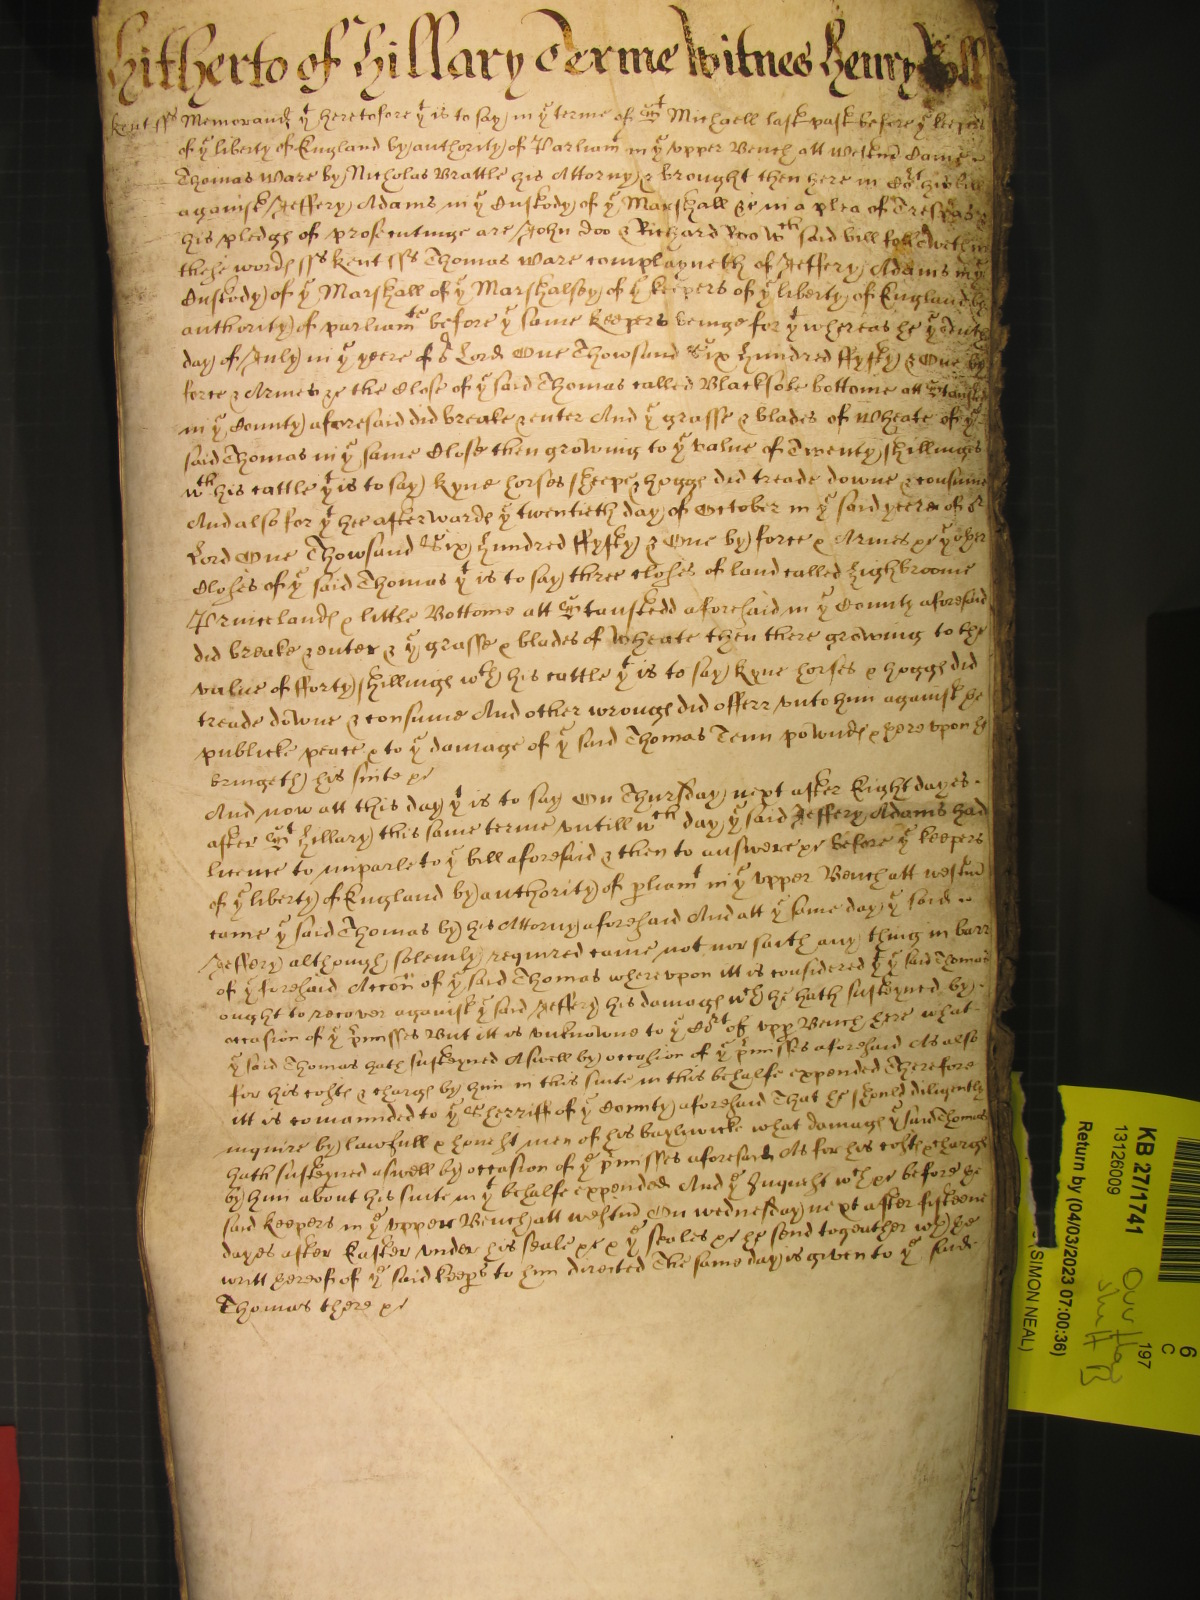 Hitherto of Hillary Terme Witnes Henry Roll
Kent ss Memorand yt heretofore yt is to say in ye terme of St Michaell last past before ye keepers
of ye liberty of England by authority of Parliamt in ye upper Bench att Westmr Came
Thomas Ware by Nicholas Brattle his Attorny & brought then here in Cort his bill
against Jeffery Adams in ye Custody of ye Marshall &c in a plea of Trespas &
his pledge of prosecutinge are John Doo & Richard Roo wch said bill followeth in
these words ss Kent ss Thomas Ware complayneth of Jeffery Adams in ye
Custody of ye Marshall of ye Marshalsey of ye keepers of ye liberty of England by
authority of parliamte before ye same keepers beinge for yt whereas he ye
day of July in ye yeere of or Lord One Thowsand Six hundred ffyfty & One by
force & Armes &c the Close of ye said Thomas called Blacksole bottome att Stansted
in ye County aforesaid did breake & enter And ye grasse & blades of Wheate of ye
said Thomas in ye same Close then growing to ye value of Twenty shillinges
wth his cattle yt is to say Kyne horses sheepe & hogge did treade downe & consume
And also for yt hee afterwards ye twentieth day of October in ye said yeere of or
Lord One Thowsand Six hundred ffyfty & One by force & Armes &c ye other
Closes of ye said Thomas yt is to say three closes of land called Highbroome
Pruicelands & little Bottome att Stanstedd aforesaid in ye County aforesaid
did breake & enter & ye grasse & blades of Wheate then there growing to the
value of fforty shillings wth his cattle yt is to say Kyne horses & hogge did
treade downe & consume And other wrongs did offerr unto him against ye
publicke peace & to ye damage of ye said Thomas Tenn pownds & hereupon he
bringeth his suite &c
And now att this day yt is to say On Thursday next after Eight dayes
after St Hillary this same terme untill wch day ye said Jeffery Adams had
licence to imparle to ye bill aforesaid & then to answere &c before ye keepers
of ye liberty of England by authority of parliamt in ye upper Bench att Westmr
came ye said Thomas by his Attorny aforesaid And att ye same day ye said
Jeffery although solemly required came not nor saith any thing in barr
of ye foresaid Accon of ye said Thomas whereupon itt is considered yt ye said Thomas
ought to recover against ye said Jeffery his damage wch he hath susteyned by
occasion of ye pmisses But itt is unknowne to ye Cort of upp Bench here what
ye said Thomas hath susteyned Aswell by occasion of ye pmisses aforesaid As also
for his costs & charge by him in this suite in this behalfe expended Therefore
itt is comannded to ye Sherriff of ye County aforesaid That he should diligently
inquire by lawfull & honest men of his baylywicke what damage ye said Thomas
hath susteyned aswell by occasion of ye pmisses aforesaid As for his costs & charge
by him about his suite in yt behalfe expended And ye Inquest wch &c before ye
said keepers in ye upper Bench att Westmr On Wednesday next after fifteene
dayes after Easter under his seale &c & ye seales &c he send togeather wth ye
writt hereof of ye said keeps to him directed The same day is given to ye said
Thomas there &c
KB 27/1741
13126009
Return by (04/03/2023 07:00:36)
(SIMON NEAL)
197
6
C